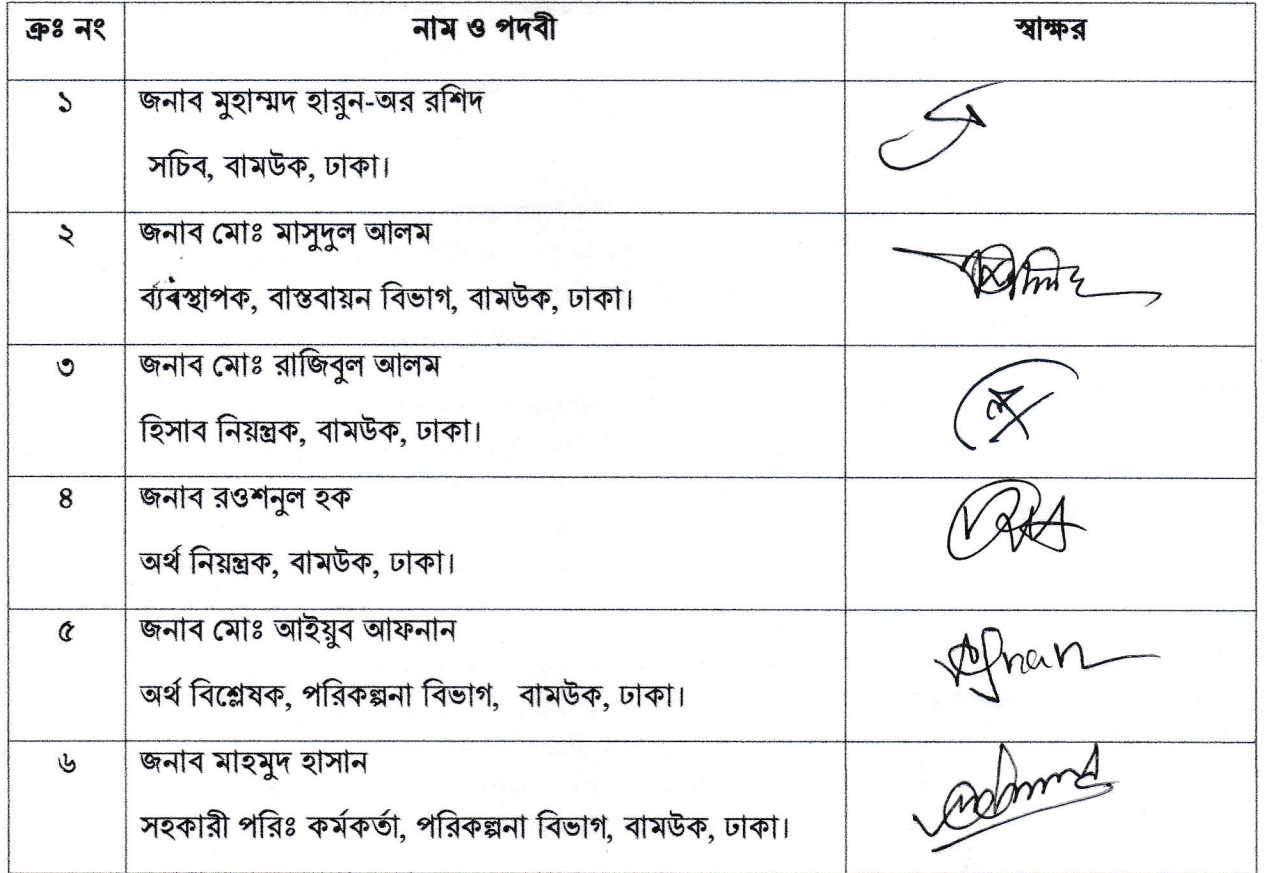 ক্রঃ নং নাম ও পদবী স্বাক্ষর
১ জনাব মুহাম্মদ হারুন-অর রশিদ
সচিব, বামউক, ঢাকা।
২ জনাব মোঃ মাসুদুল আলম
ব্যবস্থাপক, বাস্তবায়ন বিভাগ, বামউক, ঢাকা।
৩ জনাব মোঃ রাজিবুল আলম
হিসাব নিয়ন্ত্রক, বামউক, ঢাকা।
৪ জনাব রওশনুল হক
অর্থ নিয়ন্ত্রক, বামউক, ঢাকা।
৫ জনাব মোঃ আইয়ুব আফনান
Afnan
অর্থ বিশ্লেষক, পরিকল্পনা বিভাগ, বামউক, ঢাকা।
৬ জনাব মাহমুদ হাসান
সহকারী পরিঃ কর্মকর্তা, পরিকল্পনা বিভাগ, বামউক, ঢাকা।